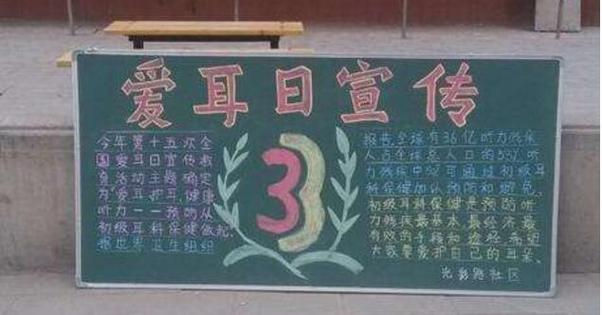 爱耳日宣传
今年第十五次全
国爱耳日宣传教
育活动主题确定
为"爱耳护耳,健康
听力——预防从
初级耳科保健做起
根世界卫生组织
33
报告全球有36亿听力残疾
人占全球总人口的5%,听
力残疾中50%可通过初级耳
科保健加以预防和避免、
初级耳科保健是预防听
力残疾最基本、最经济最
有效的手段和途径希望
大家要爱护自己的耳朵。
光彩路社区